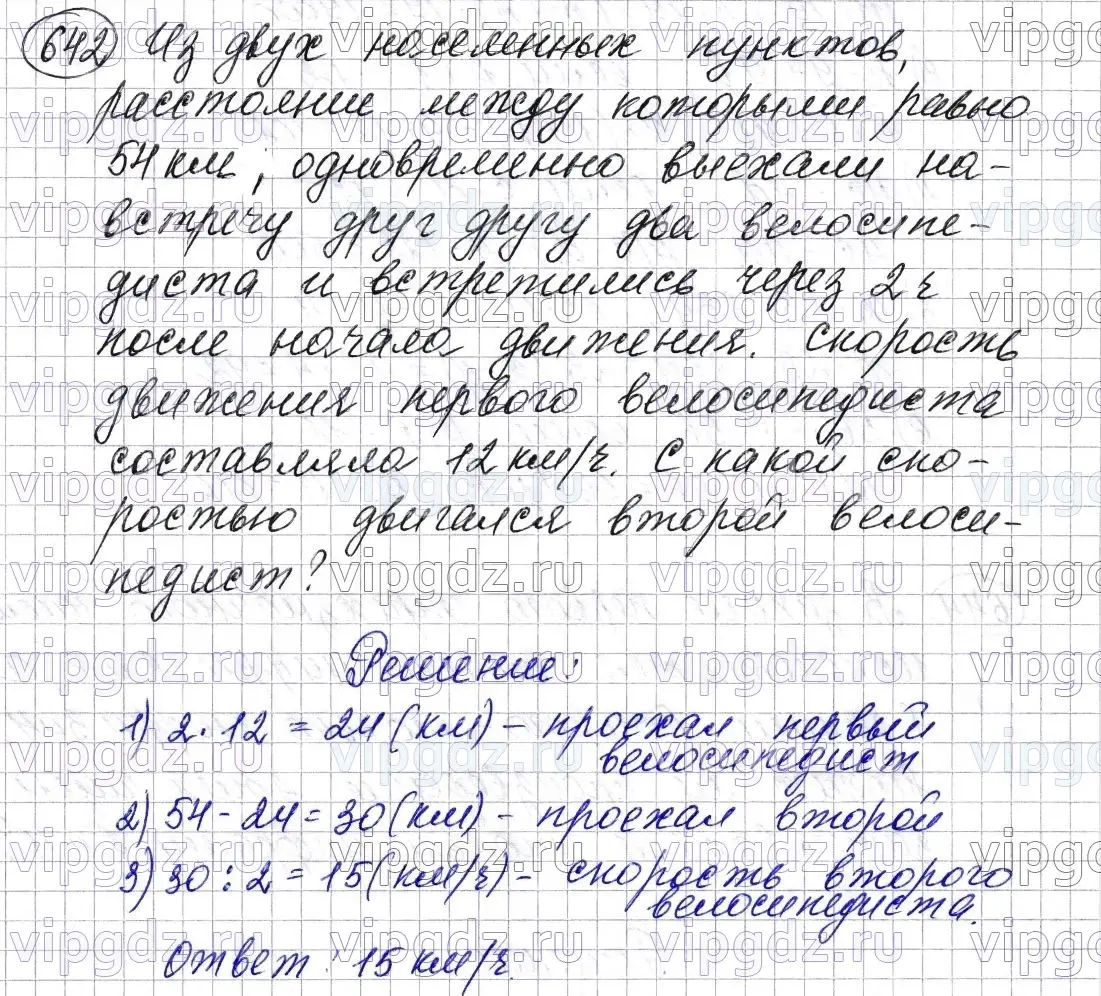 642 Из двух населенных пунктов,
расстояние между которыми равно
54 км, одновременно выехали на-
встречу друг другу два велосипе-
диста и встретились через 2 ч
после начала движения. Скорость
движения первого велосипедиста
составляла 12 км/ч. С какой ско-
ростью двигался второй велоси-
педист?
Решение:
1) 2 · 12 = 24 (км) – проехал первый
велосипедист
2) 54 - 24 = 30 (км) – проехал второй
3) 30 : 2 = 15 (км/ч) – скорость второго
велосипедиста.
Ответ: 15 км/ч.
vipgdz.ru